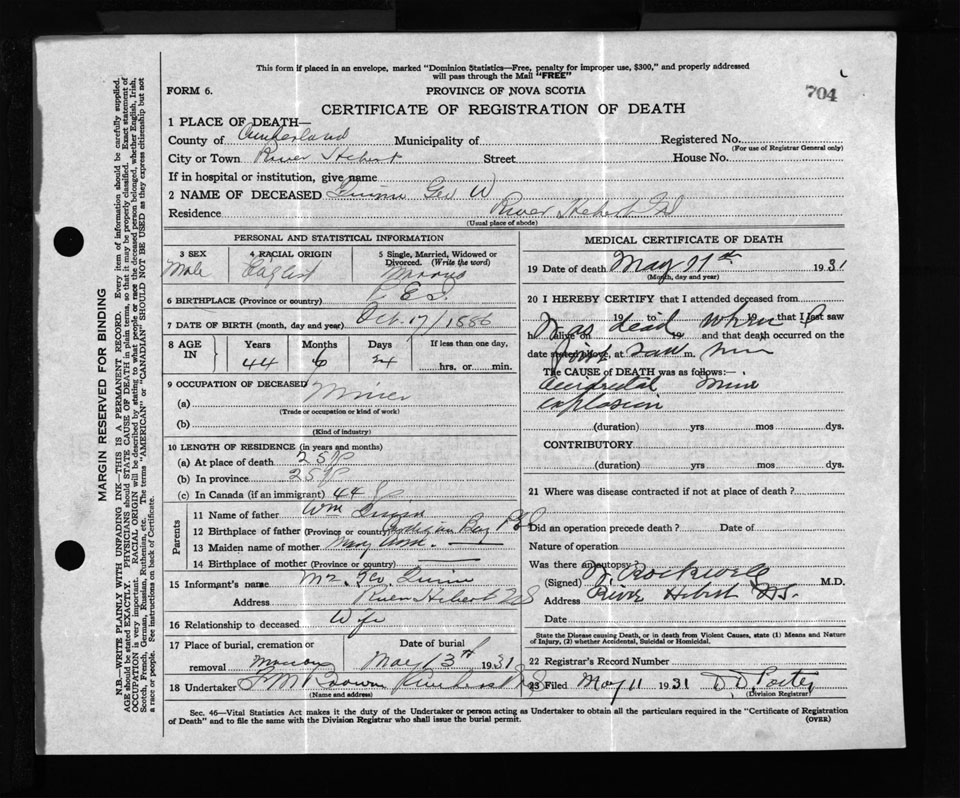 This form if placed in an envelope, marked "Dominion Statistics—Free, penalty for improper use, $300," and properly addressed
will pass through the Mail "FREE"
FORM 6.
PROVINCE OF NOVA SCOTIA
704
CERTIFICATE OF REGISTRATION OF DEATH
1 PLACE OF DEATH—
County of Cumberland Municipality of Registered No.
(For use of Registrar General only)
City or Town River Hebert Street House No.
If in hospital or institution, give name
2 NAME OF DECEASED Quinn Geo W
Residence River Hebert NS
(Usual place of abode)
PERSONAL AND STATISTICAL INFORMATION
3 SEX Male
4 RACIAL ORIGIN English
5 Single, Married, Widowed or Divorced. (Write the word)
Married
6 BIRTHPLACE (Province or country) P.E.I.
7 DATE OF BIRTH (month, day and year) Oct. 17/1886
8 AGE IN Years Months Days If less than one day,
44 6 24 hrs. or min.
9 OCCUPATION OF DECEASED
(a) Miner
(Trade or occupation or kind of work)
(b)
(Kind of industry)
10 LENGTH OF RESIDENCE (in years and months)
(a) At place of death 25 yr
(b) In province 25 yr
(c) In Canada (if an immigrant) 44
Parents
11 Name of father Wm Quinn
12 Birthplace of father (Province or country) Bay P.E.I.
13 Maiden name of mother Mary —
14 Birthplace of mother (Province or country) —
15 Informant's name Mrs. Geo. Quinn
Address River Hebert NS
16 Relationship to deceased Wife
17 Place of burial, cremation or removal
Date of burial
May 13th 1931
18 Undertaker F M Brown Amherst NS
(Name and address)
MEDICAL CERTIFICATE OF DEATH
19 Date of death May 11th 1931
(Month, day and year)
20 I HEREBY CERTIFY that I attended deceased from
19 to 19 that I last saw
h alive on 19 and that death occurred on the
date stated above, at m.
Was dead when I
first saw him
The CAUSE OF DEATH was as follows:—
accidental mine
explosion
(duration) yrs mos dys.
CONTRIBUTORY
(duration) yrs mos dys.
21 Where was disease contracted if not at place of death?
Did an operation precede death? Date of
Nature of operation
Was there an autopsy?
(Signed) Rockwell M.D.
Address River Hebert NS.
Date
State the Disease causing Death, or in death from Violent Causes, state (1) Means and Nature
of Injury, (2) whether Accidental, Suicidal or Homicidal.
22 Registrar's Record Number
23 Filed May 11 1931 D. D. Porter
(Division Registrar)
Sec. 46—Vital Statistics Act makes it the duty of the Undertaker or person acting as Undertaker to obtain all the particulars required in the "Certificate of Registration
of Death" and to file the same with the Division Registrar who shall issue the burial permit.
(OVER)
MARGIN RESERVED FOR BINDING
N.B.—WRITE PLAINLY WITH UNFADING INK—THIS IS A PERMANENT RECORD. Every item of information should be carefully supplied.
AGE should be stated EXACTLY. PHYSICIANS should STATE CAUSE OF DEATH in plain terms, so that it may be properly classified. Exact statement of
OCCUPATION is very important. RACIAL ORIGIN will be described by stating to what people or race the deceased person belonged, whether English, Irish,
Scotch, French, German, Russian, Ruthenian, etc. The terms "AMERICAN" or "CANADIAN" SHOULD NOT BE USED as they express citizenship but not
a race or people. See instructions on back of Certificate.